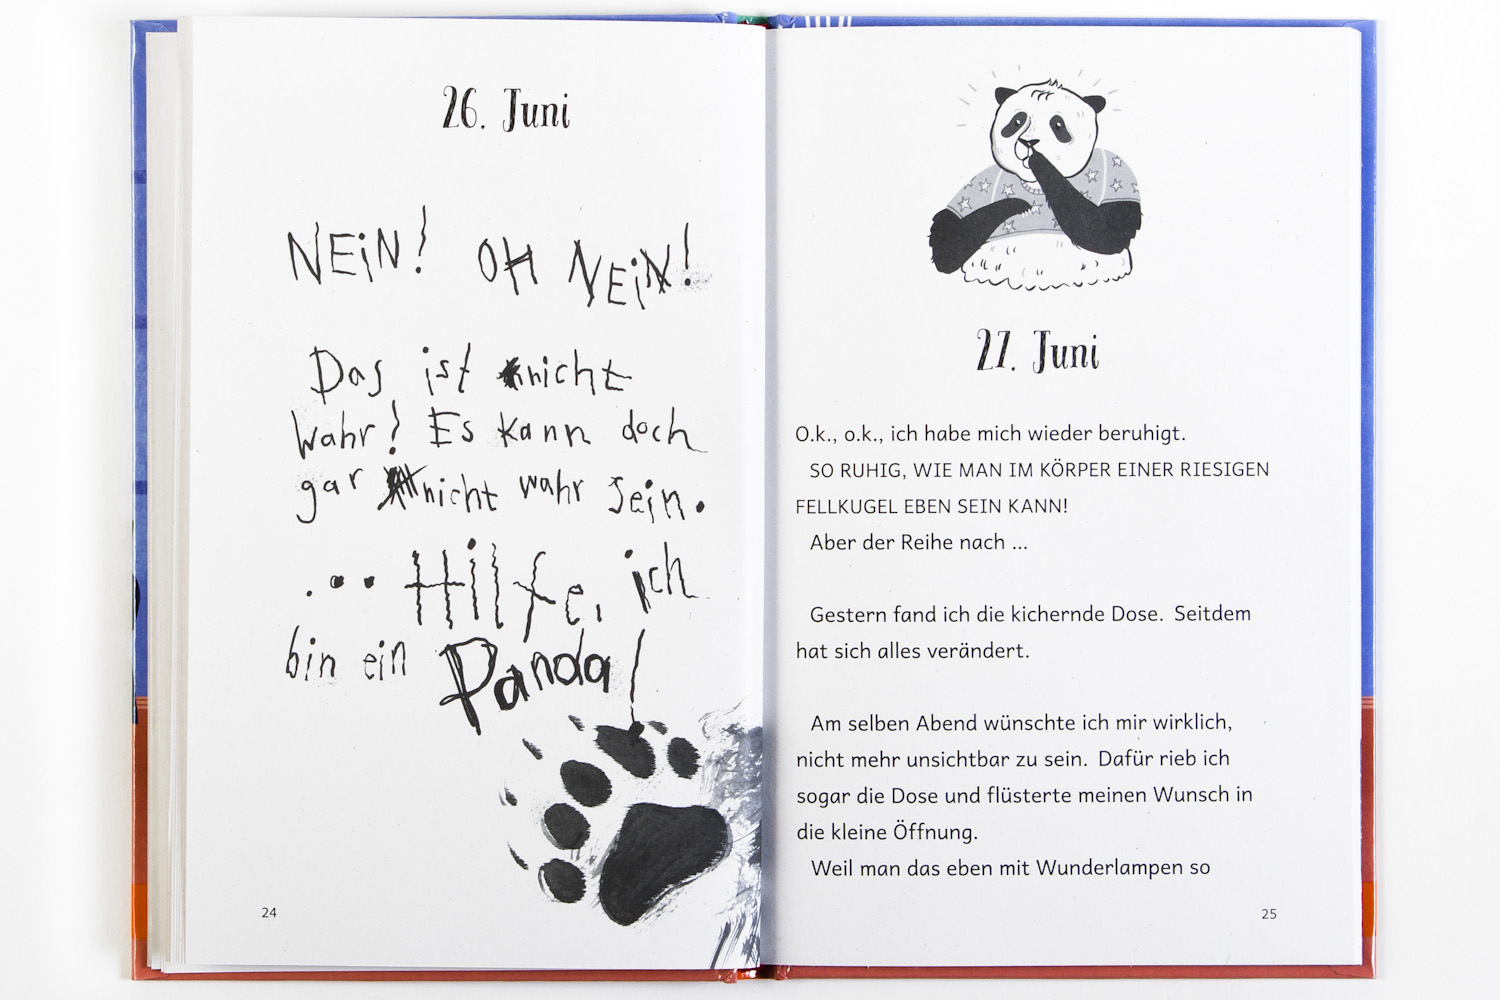 26. Juni
NEiN! OH NEiN!
Das ist nicht
wahr! Es kann doch
gar nicht wahr sein.
... Hilfe, ich
bin ein Panda!
24
27. Juni
O.k., o.k., ich habe mich wieder beruhigt.
SO RUHIG, WIE MAN IM KÖRPER EINER RIESIGEN
FELLKUGEL EBEN SEIN KANN!
Aber der Reihe nach ...
Gestern fand ich die kichernde Dose. Seitdem
hat sich alles verändert.
Am selben Abend wünschte ich mir wirklich,
nicht mehr unsichtbar zu sein. Dafür rieb ich
sogar die Dose und flüsterte meinen Wunsch in
die kleine Öffnung.
Weil man das eben mit Wunderlampen so
25